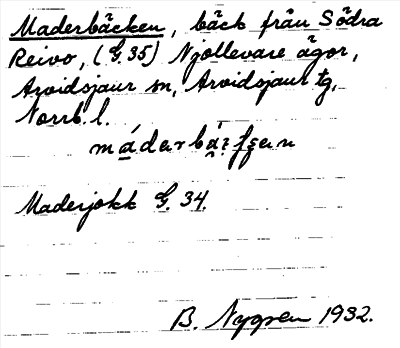 Maderbäcken, bäck från Södra
Reivo, (G. 35) Njollevare ägor,
Arvidsjaur sn, Arvidsjaur tg,
Norrb. l.
Maderjokk G. 34.
B. Nygren 1932.